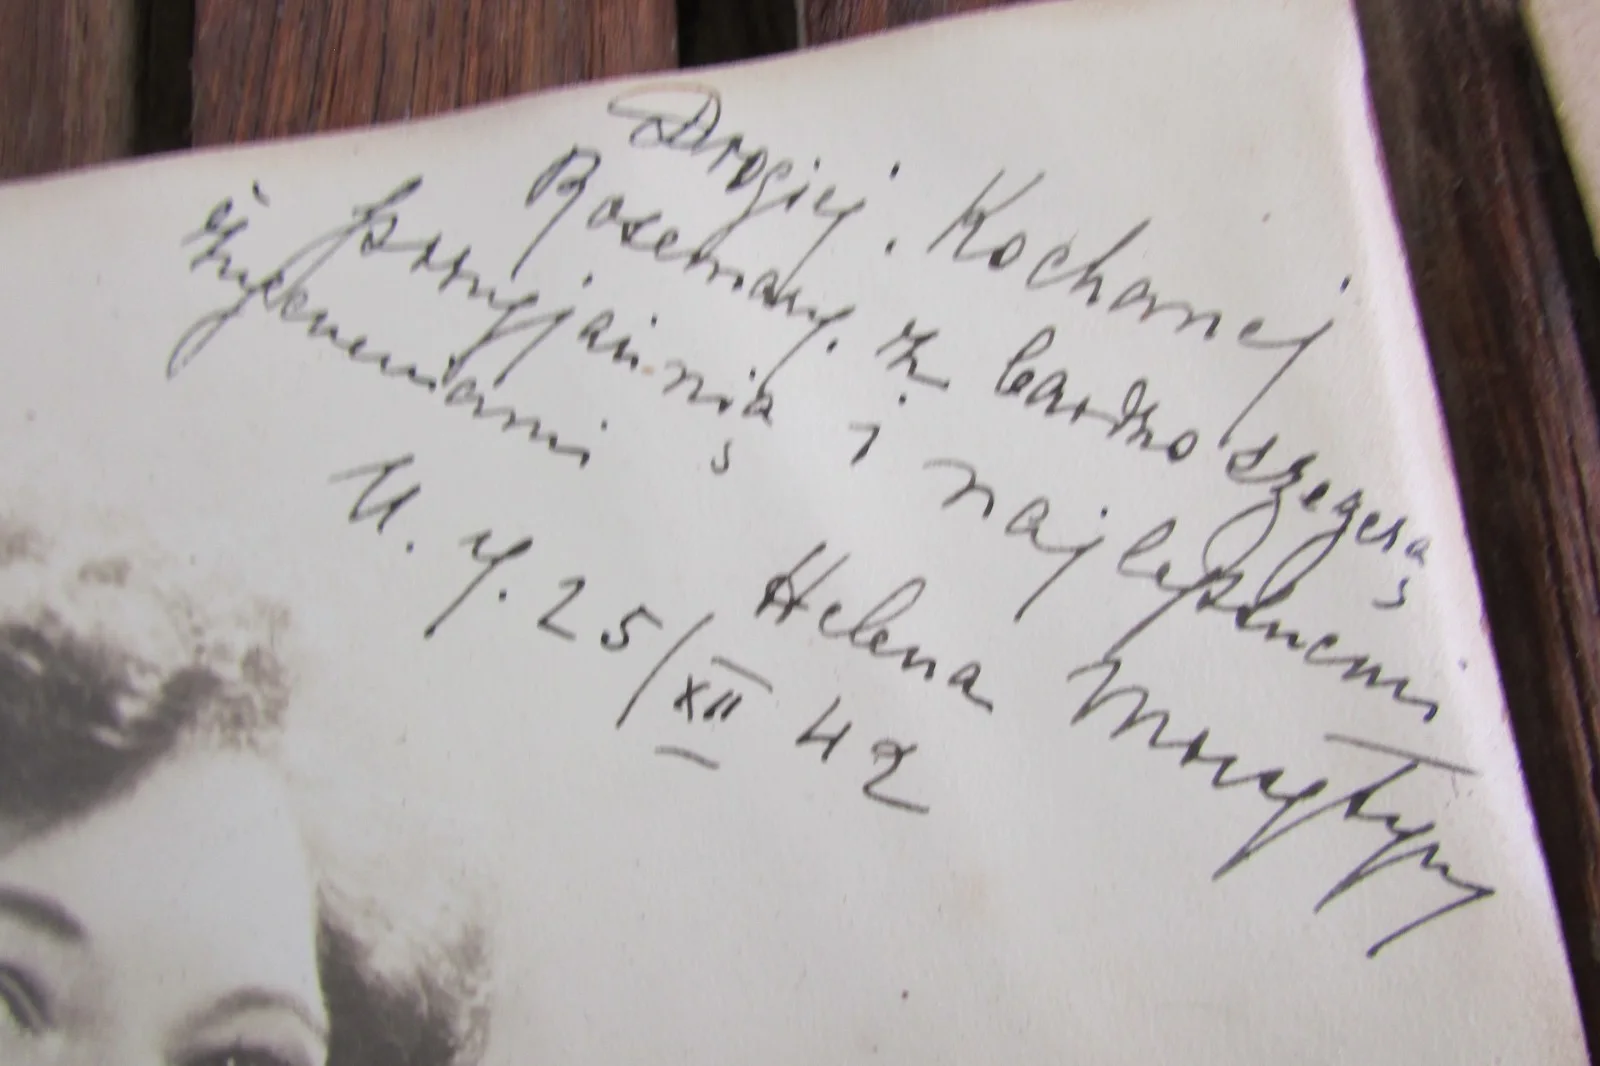 Drogiej. Kochanej
Rosemary. z bardzo szczerą
przyjaźnią i najlepszemi
życzeniami
Helena Morsztyn
N. Y. 25/XII 42